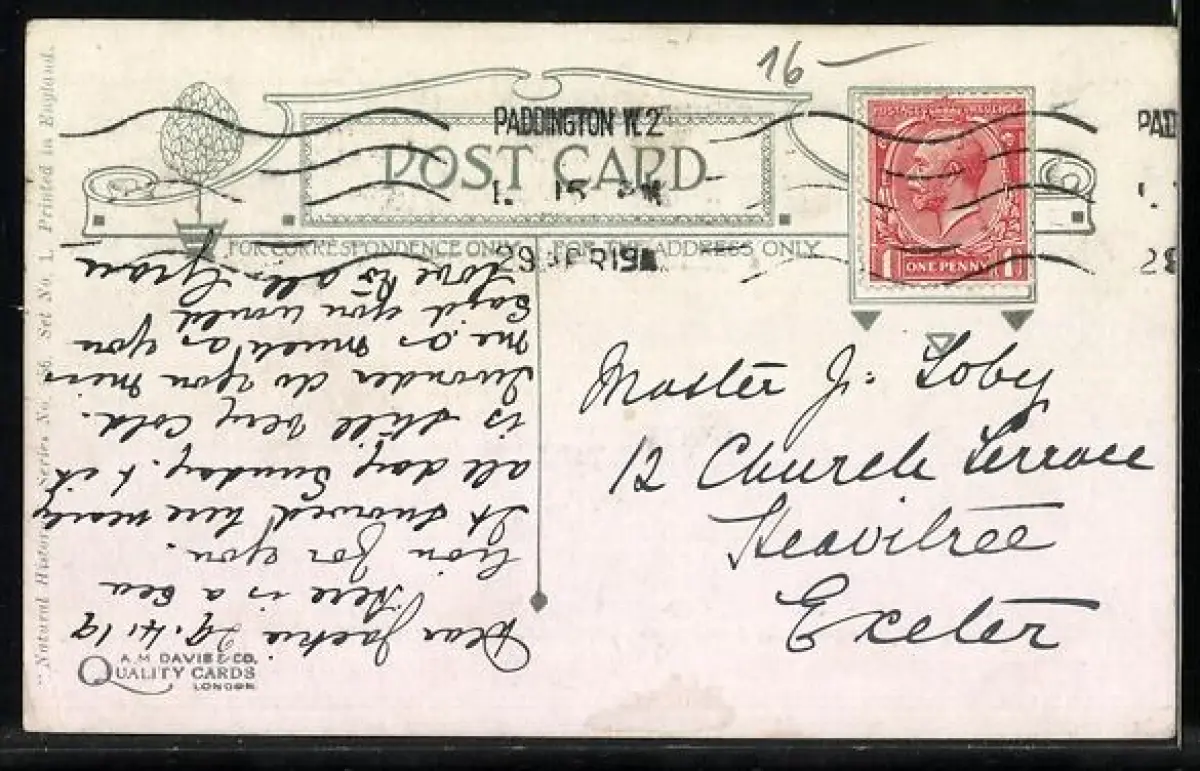 16
PADDINGTON W.2
POST CARD
1. 15 PM
29 AP 19
FOR CORRESPONDENCE ONLY
FOR THE ADDRESS ONLY
POSTAGE REVENUE
1 ONE PENNY 1
PAD
29
Dear Jackie. 29.4.19
Here is a Sea
Lion for you.
It snowed here nearly
all day Sunday. & it
is still very cold.
I wonder do you miss
me as much as you
said you would
Love to all Gran
Master J. Loby
12 Church Terrace
Heavitree
Exeter
"Natural History" Series No. Set No. 1. Printed in England.
A. M. DAVIS & CO.
QUALITY CARDS
LONDON